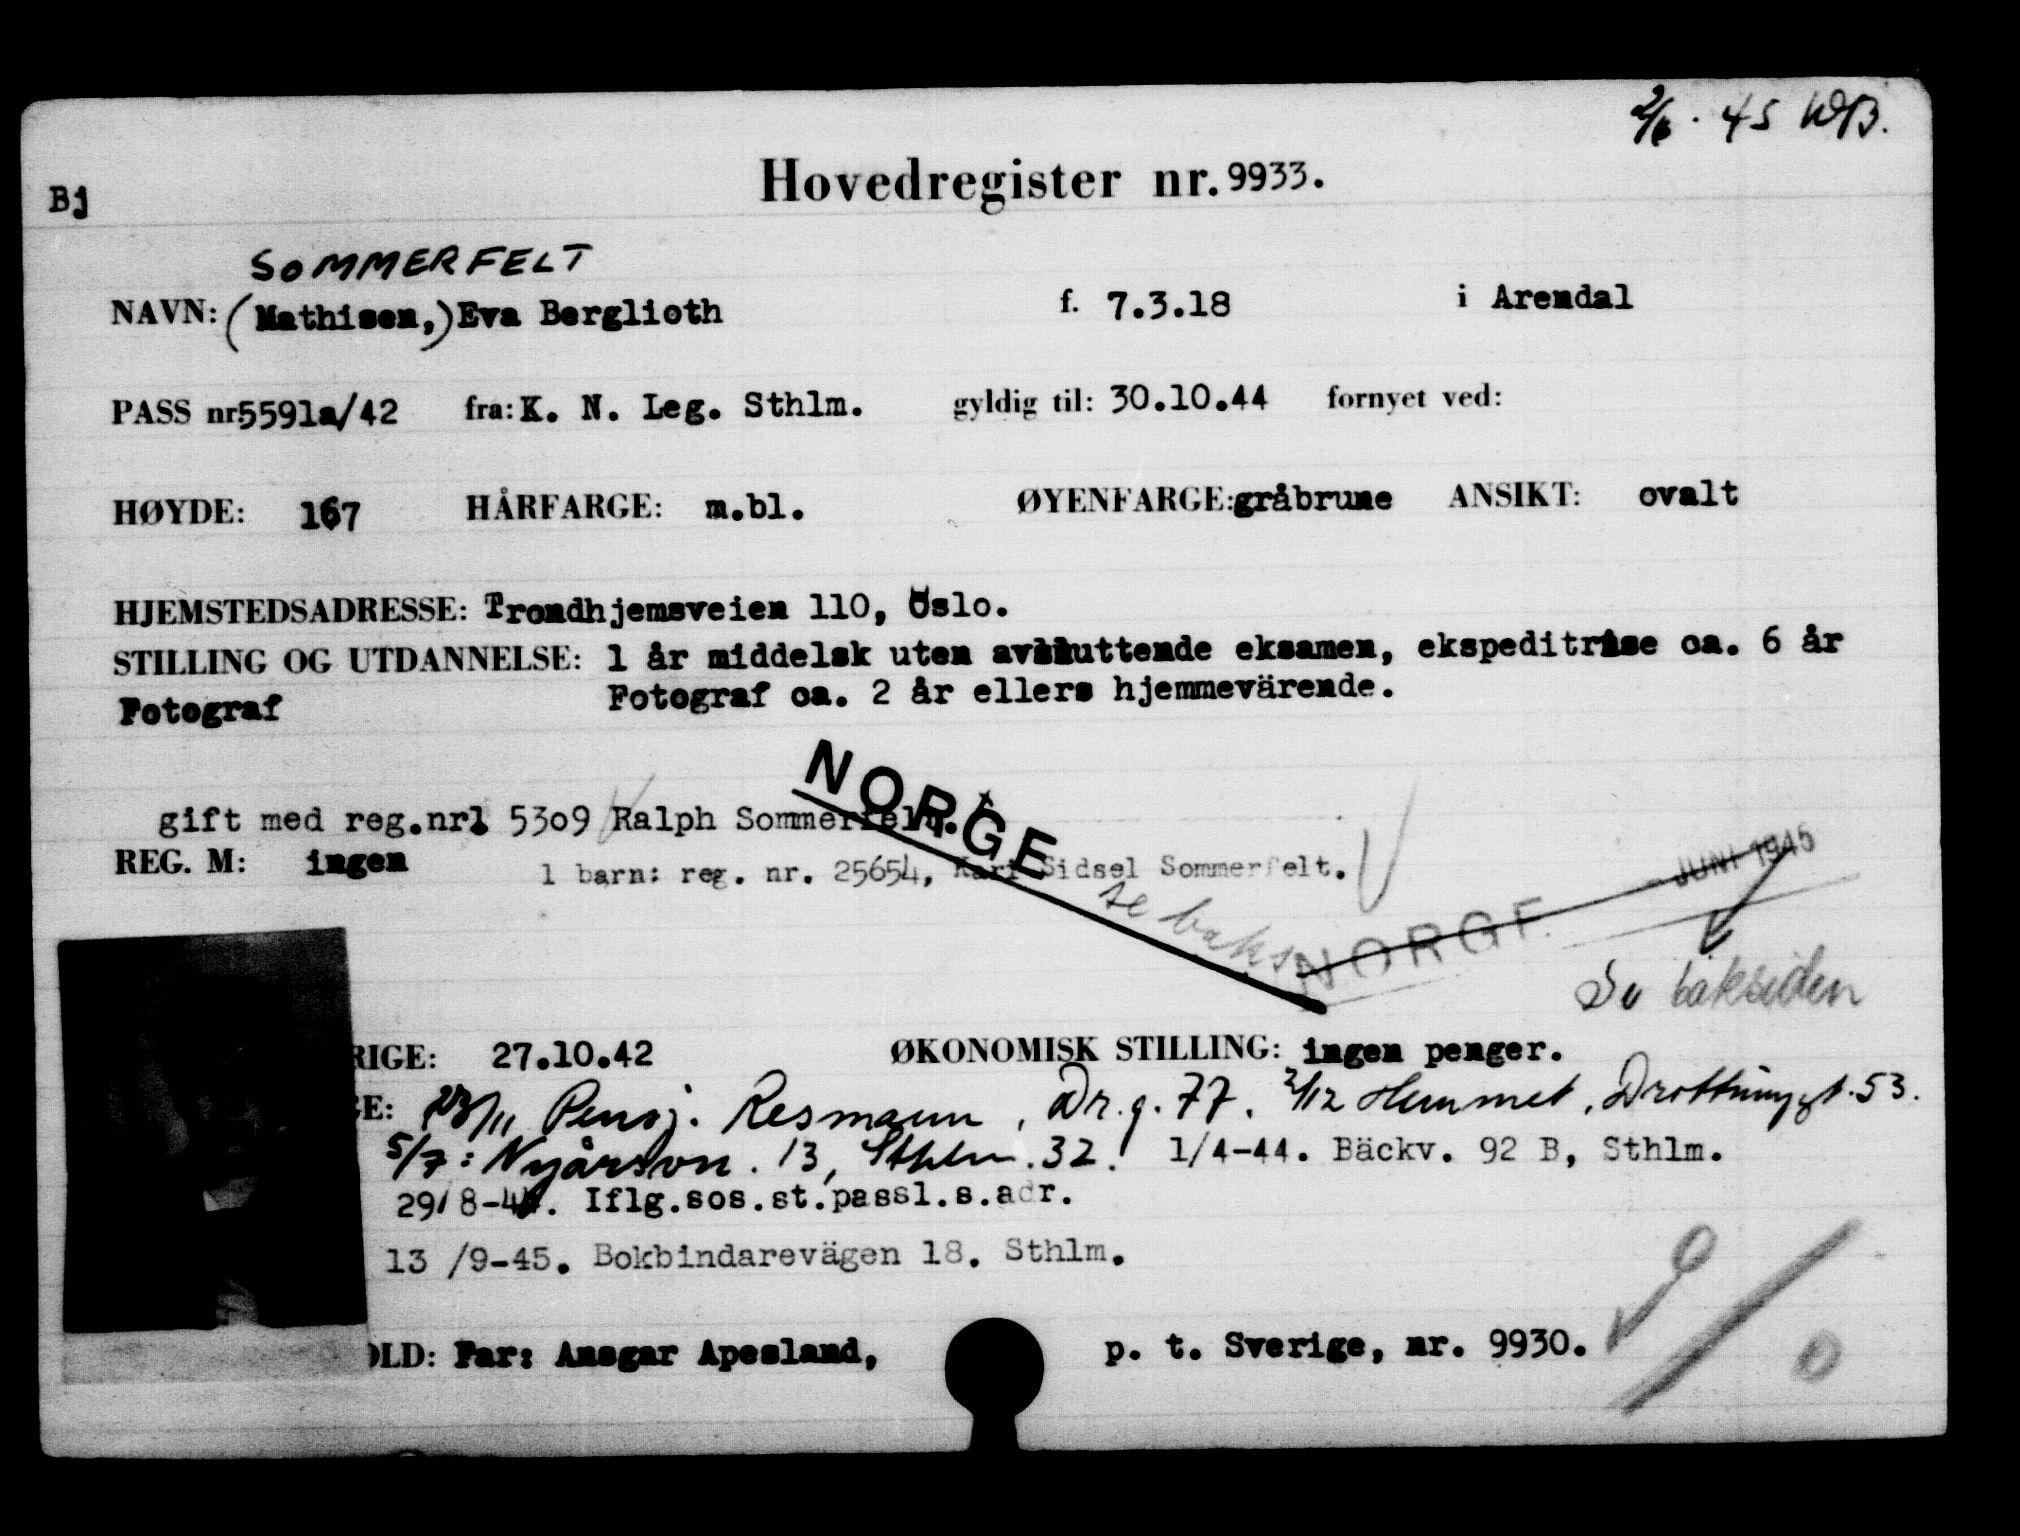 2/6. 45 WB.
Hovedregister nr. 9933.
Bj
SOMMERFELT
NAVN: (Mathisen,) Eva Berglioth f. 7.3.18 i Arendal
PASS nr 5591a/42 fra: K. N. Leg. Sthlm. gyldig til: 30.10.44 fornyet ved:
HØYDE: 167 HÅRFARGE: m.bl. ØYENFARGE: gråbrune ANSIKT: ovalt
HJEMSTEDSADRESSE: Trondhjemsveien 110, Oslo.
STILLING OG UTDANNELSE: 1 år middelsk uten avsluttende eksamen, ekspeditrise ca. 6 år
Fotograf Fotograf ca. 2 år ellers hjemmevärende.
NORGE
gift med reg.nr. 5309 Ralph Sommerfelt.
JUNI 1945
REG. M: ingen 1 barn: reg. nr. 25654, Kari Sidsel Sommerfelt.
se baks
NORGE
Se baksiden
RIGE: 27.10.42 ØKONOMISK STILLING: ingen penger.
GE: 23/11 Pensj. Resmann, Dr.g. 77. 2/12 Hemmet, Drottningt. 53.
5/7: Nyårsvn. 13, Sthlm. 32. 1/4-44. Bäckv. 92 B, Sthlm.
29/8-44. Iflg.sos.st.passl.s.adr.
13/9-45. Bokbindarevägen 18. Sthlm.
OLD: Far: Ansgar Apesland, p. t. Sverige, nr. 9930.